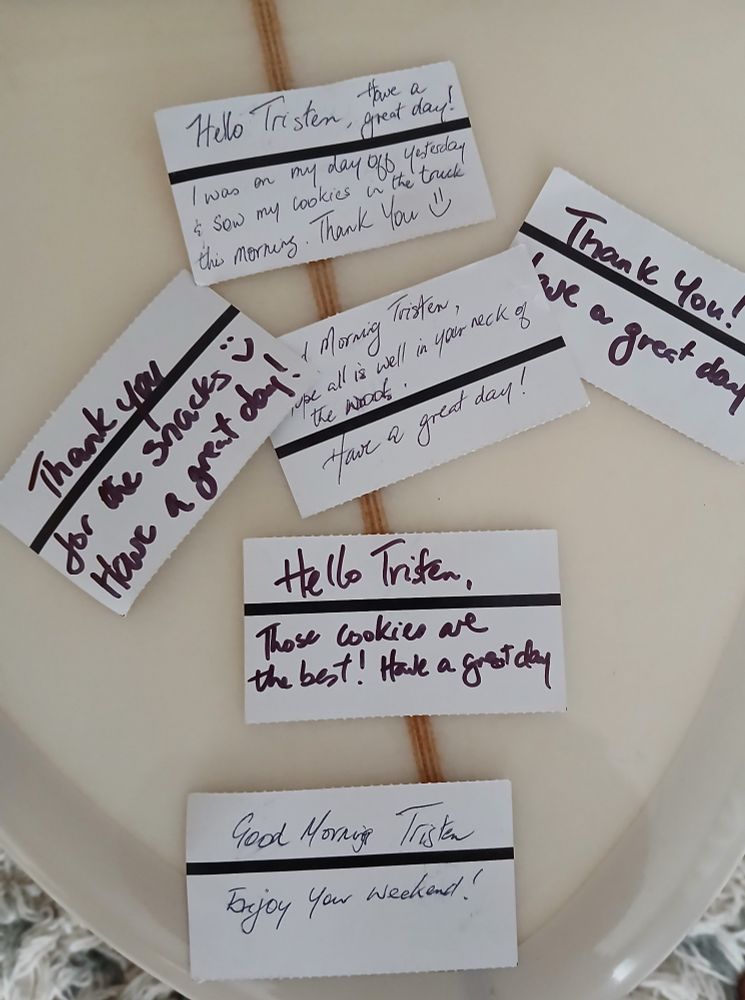 Hello Tristen, Have a
great day!
I was on my day off yesterday
& saw my cookies in the truck
this morning. Thank You
Thank You!
ave a great day
d Morning Tristen,
ope all is well in your neck of
the woods.
Have a great day!
Thank you
for the snacks
Have a great day!
Hello Tristen,
Those cookies are
the best! Have a great day
Good Morning Tristen
Enjoy Your Weekend!